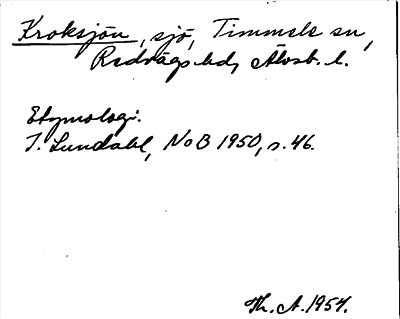 Kroksjön, sjö, Timmele sn,
Redvägs hd, Älvsb. l.
Etymologi.
I. Lundahl, NoB 1950, s. 46.
Th. A. 1954.